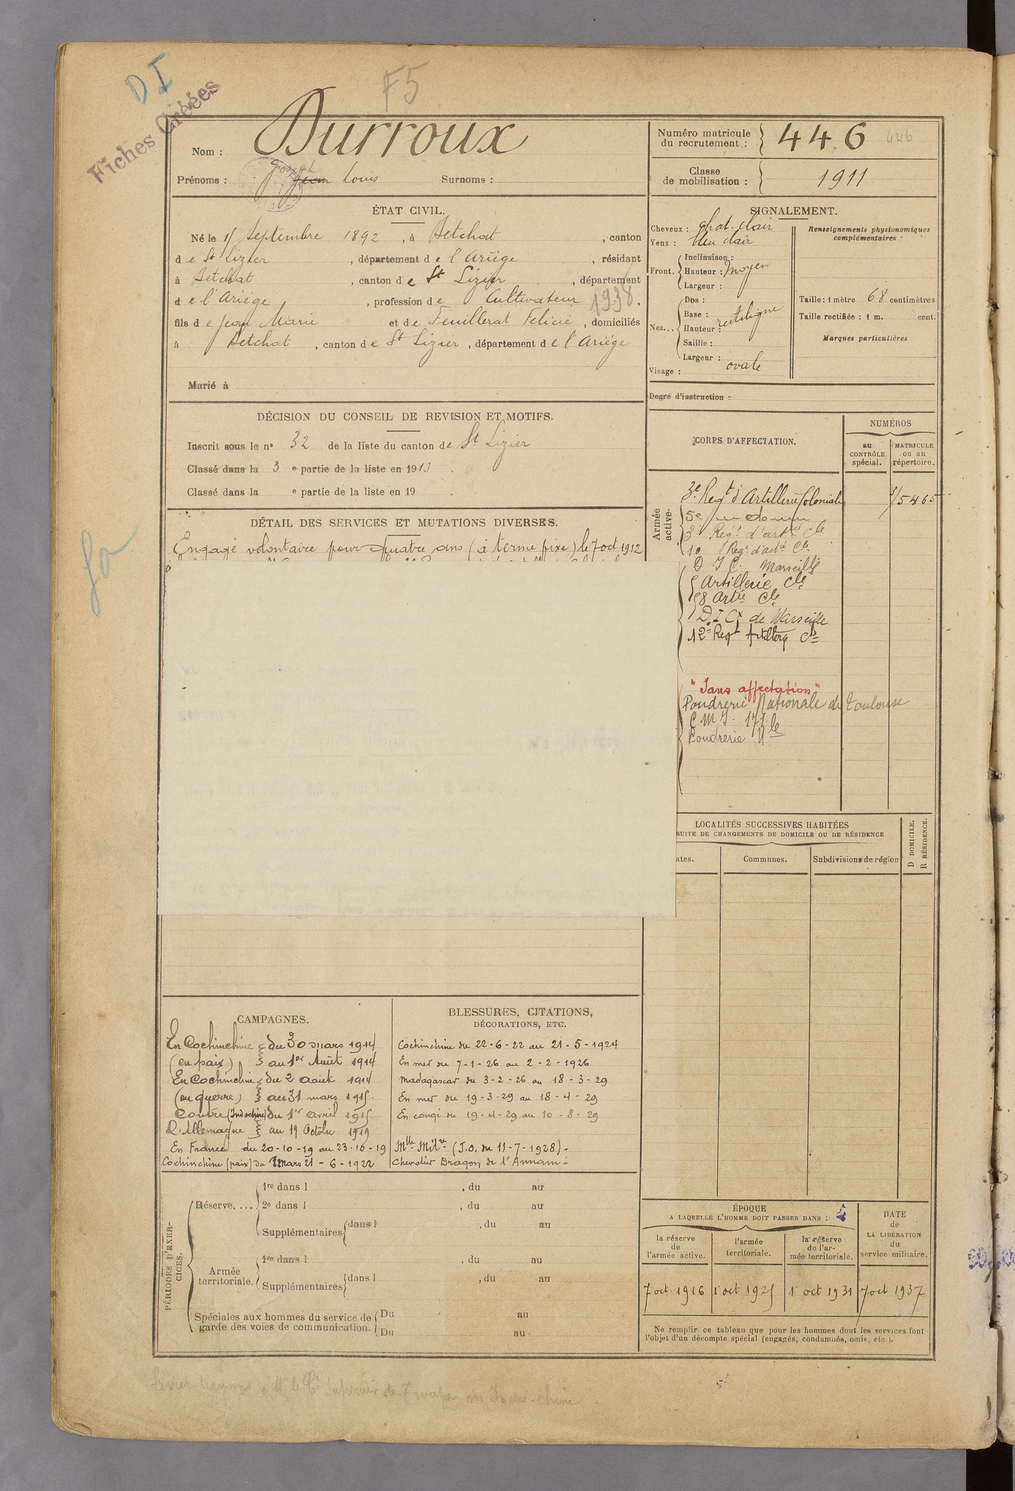 D I
F5
Fiches Créées
Nom : Durroux
Prénoms : Jean Louis Surnoms :
Numéro matricule du recrutement : 446 446
Classe de mobilisation : 1911
ÉTAT CIVIL.
Né le 1r Septembre 1892, à Betchat, canton
de St Lizier, département de l'Ariège, résidant
à Betchat, canton de St Lizier, département
de l'Ariège, profession de Cultivateur 1938.
fils de Jean Marie et de Feuillerat Félicie, domiciliés
à Betchat, canton de St Lizier, département de l'Ariège
Marié à
SIGNALEMENT.
Cheveux : chat. clair
Yeux : bleu clair
Front. Inclinaison :
Hauteur : moyen
Largeur :
Nez... Dos :
Base :
Hauteur : rectiligne
Saillie :
Largeur :
Visage : ovale
Renseignements physionomiques complémentaires
Taille : 1 mètre 68 centimètres
Taille rectifiée : 1 m. cent.
Marques particulières
Degré d'instruction :
DÉCISION DU CONSEIL DE REVISION ET MOTIFS.
Inscrit sous le n° 32 de la liste du canton de St Lizier
Classé dans la 3 e partie de la liste en 1913.
Classé dans la e partie de la liste en 19 .
DÉTAIL DES SERVICES ET MUTATIONS DIVERSES.
Engagé volontaire pour quatre ans (à terme fixe) le 7 oct 1912
CORPS D'AFFECTATION.
NUMÉROS
AU CONTRÔLE spécial.
MATRICULE ou au répertoire.
Armée active.
3e Regt d'Artillerie Coloniale 1/5465
5e
3e Regt d'artie Cle
10 Regt d'artie Cle
D I C. Marseille
5 Artillerie Cle
58 Artie Cle
D. I. Cx de Marseille
12e Regt Artillery Cle
"Sans affectation"
Poudrerie Nationale de Toulouse
C M I. 171
Poudrerie Nle
LOCALITÉS SUCCESSIVES HABITÉES
SUITE DE CHANGEMENTS DE DOMICILE OU DE RÉSIDENCE
ates.
Communes.
Subdivisions de région
D DOMICILE.
R RÉSIDENCE.
CAMPAGNES.
En Cochinchine du 30 mars 1914
(en paix) au 1er Août 1914
En Cochinchine du 2 août 1914
(en guerre) au 31 mars 1915.
Contre (Indochine) du 1er avril 1915
L'Allemagne au 19 Octobre 1919
En France du 20-10-19 au 23-10-19
Cochinchine (paix) du 2 mars 21 - 6 - 1922
BLESSURES, CITATIONS,
DÉCORATIONS, ETC.
Cochinchine du 22-6-22 au 21-5-1924
En mer du 7-1-26 au 2-2-1926
Madagascar du 3-2-26 au 18-3-29
En mer du 19-3-29 au 18-4-29
En congé du 19-4-29 au 10-8-29
Mlle Milre (J.O. du 11-7-1928).
Chevalier Dragon de l'Annam
PÉRIODES D'EXERCICES.
Réserve.... 1re dans l , du au
2e dans l , du au
Supplémentaires dans l , du au
Armée territoriale. 1re dans l , du au
Supplémentaires dans l , du au
Spéciales aux hommes du service de garde des voies de communication. Du au
Du au
ÉPOQUE
A LAQUELLE L'HOMME DOIT PASSER DANS :
la réserve de l'armée active.
l'armée territoriale.
la réserve de l'armée territoriale.
DATE de LA LIBÉRATION du service militaire.
7 oct 1916
1r oct 1925
1r oct 1931
7 oct 1937
Ne remplir ce tableau que pour les hommes dont les services font
l'objet d'un décompte spécial (engagés, condamnés, omis, etc.).